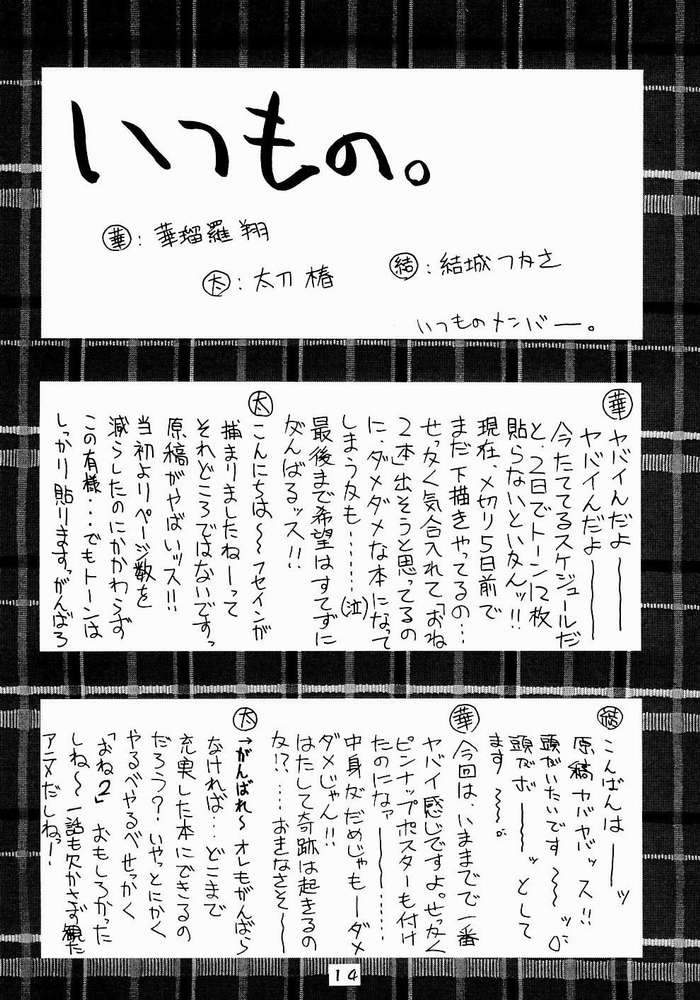 いつもの。
華：華瑠羅 翔
太：太刀 椿
結：結城つかさ
いつものメンバー。
華 ヤバイんだよ———
ヤバイんだよ———
今たててるスケジュールだ
と、2日でトーン12枚
貼らないといかんッ!!
現在、〆切り5日前で
まだ下描きやってるの…
せっかく気合入れて「おね
2本」出そうと思ってるの
に、ダメダメな本になって
しまうかも……(泣)
最後まで希望はすてずに
がんばるッス!!
太 こんにちは〜〜フセインが
捕まりましたねーって
それどころではないですっ
原稿がやばいッス!!
当初よりページ数を
減らしたのにかかわらず
この有様…でもトーンは
しっかり貼りますっがんばろ
結 こんばんは——ッ
原稿ヤバヤバッス!!
頭がいたいです〜〜ッ
頭がボ——ッとして
ます〜〜。
華 今回は、いままでで一番
ヤバイ感じですよ。せっかく
ピンナップポスターも付け
たのになァ———……
中身がだめじゃもーダメ
ダメじゃん!!
はたして奇跡は起きるの
か!?…おきなさそ——
太 →がんばれ〜 オレもがんばら
なければ…どこまで
充実した本にできるの
だろう？いやっとにかく
やるべやるべせっかく
「おね2」おもしろかった
しね〜一話も欠かさず観た
アニメだしねっー!
14